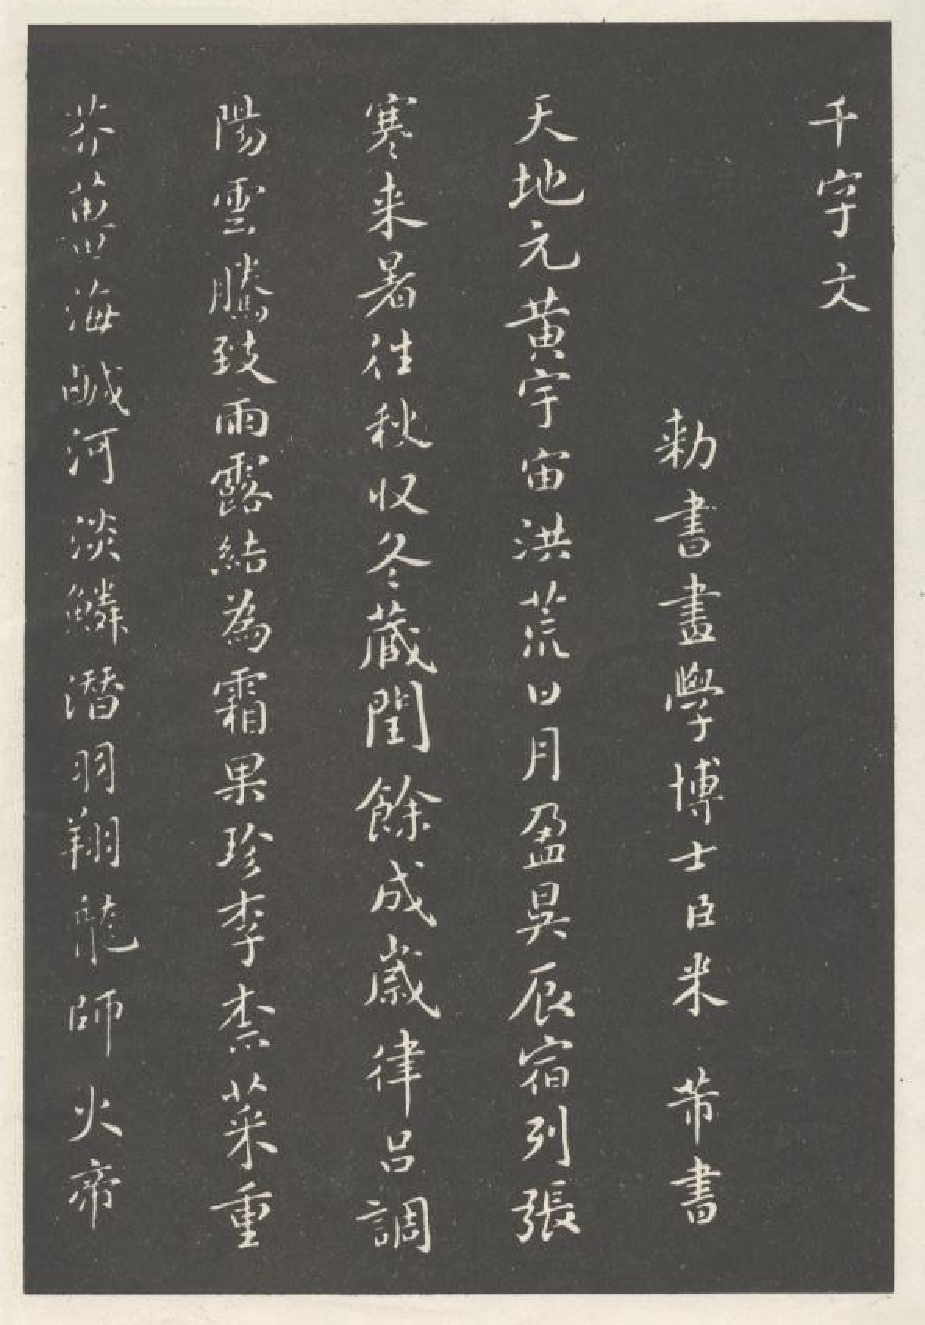 千字文
勅書畫學博士臣米 芾書
天地元黄宇宙洪荒日月盈昃辰宿列張
寒来暑往秋収冬蔵閏餘成歲律吕調
陽雲騰致雨露結為霜果珍李柰菜重
芥薑海鹹河淡鱗潛羽翔龍師火帝